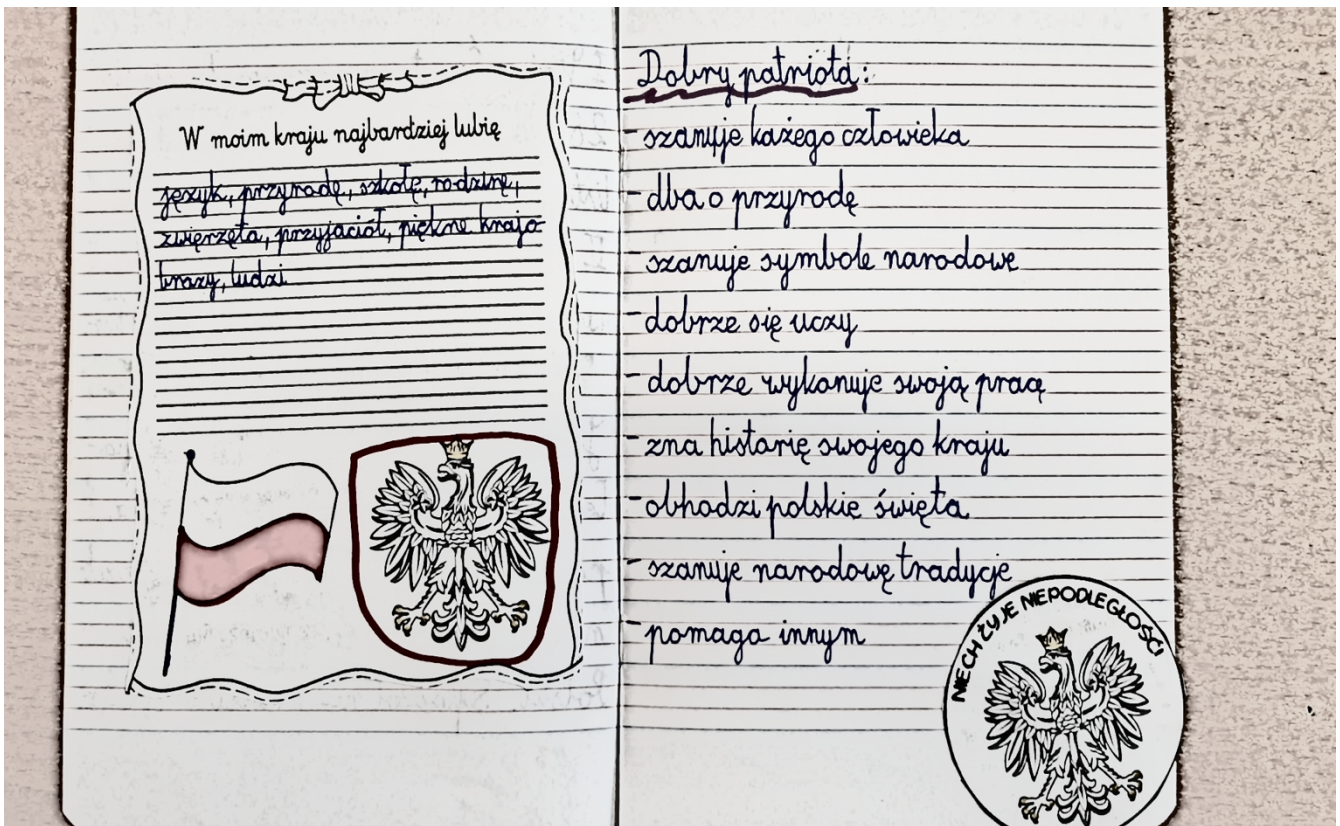 W moim kraju najbardziej lubię
język, przyrodę, szkołę, rodzinę,
zwięrzęta, przyjaciół, piękne krajo-
brazy, ludzi
Dobry patriota:
- szanuje każego człowieka
- dba o przyrodę
- szanuje symbole narodowe
- dobrze się uczy
- dobrze wykonuje swoją pracę
- zna historię swojego kraju
- obhodzi polskie święta
- szanuje narodowę tradycje
- pomaga innym
NIECH ŻYJE NIEPODLEGŁOŚĆ!